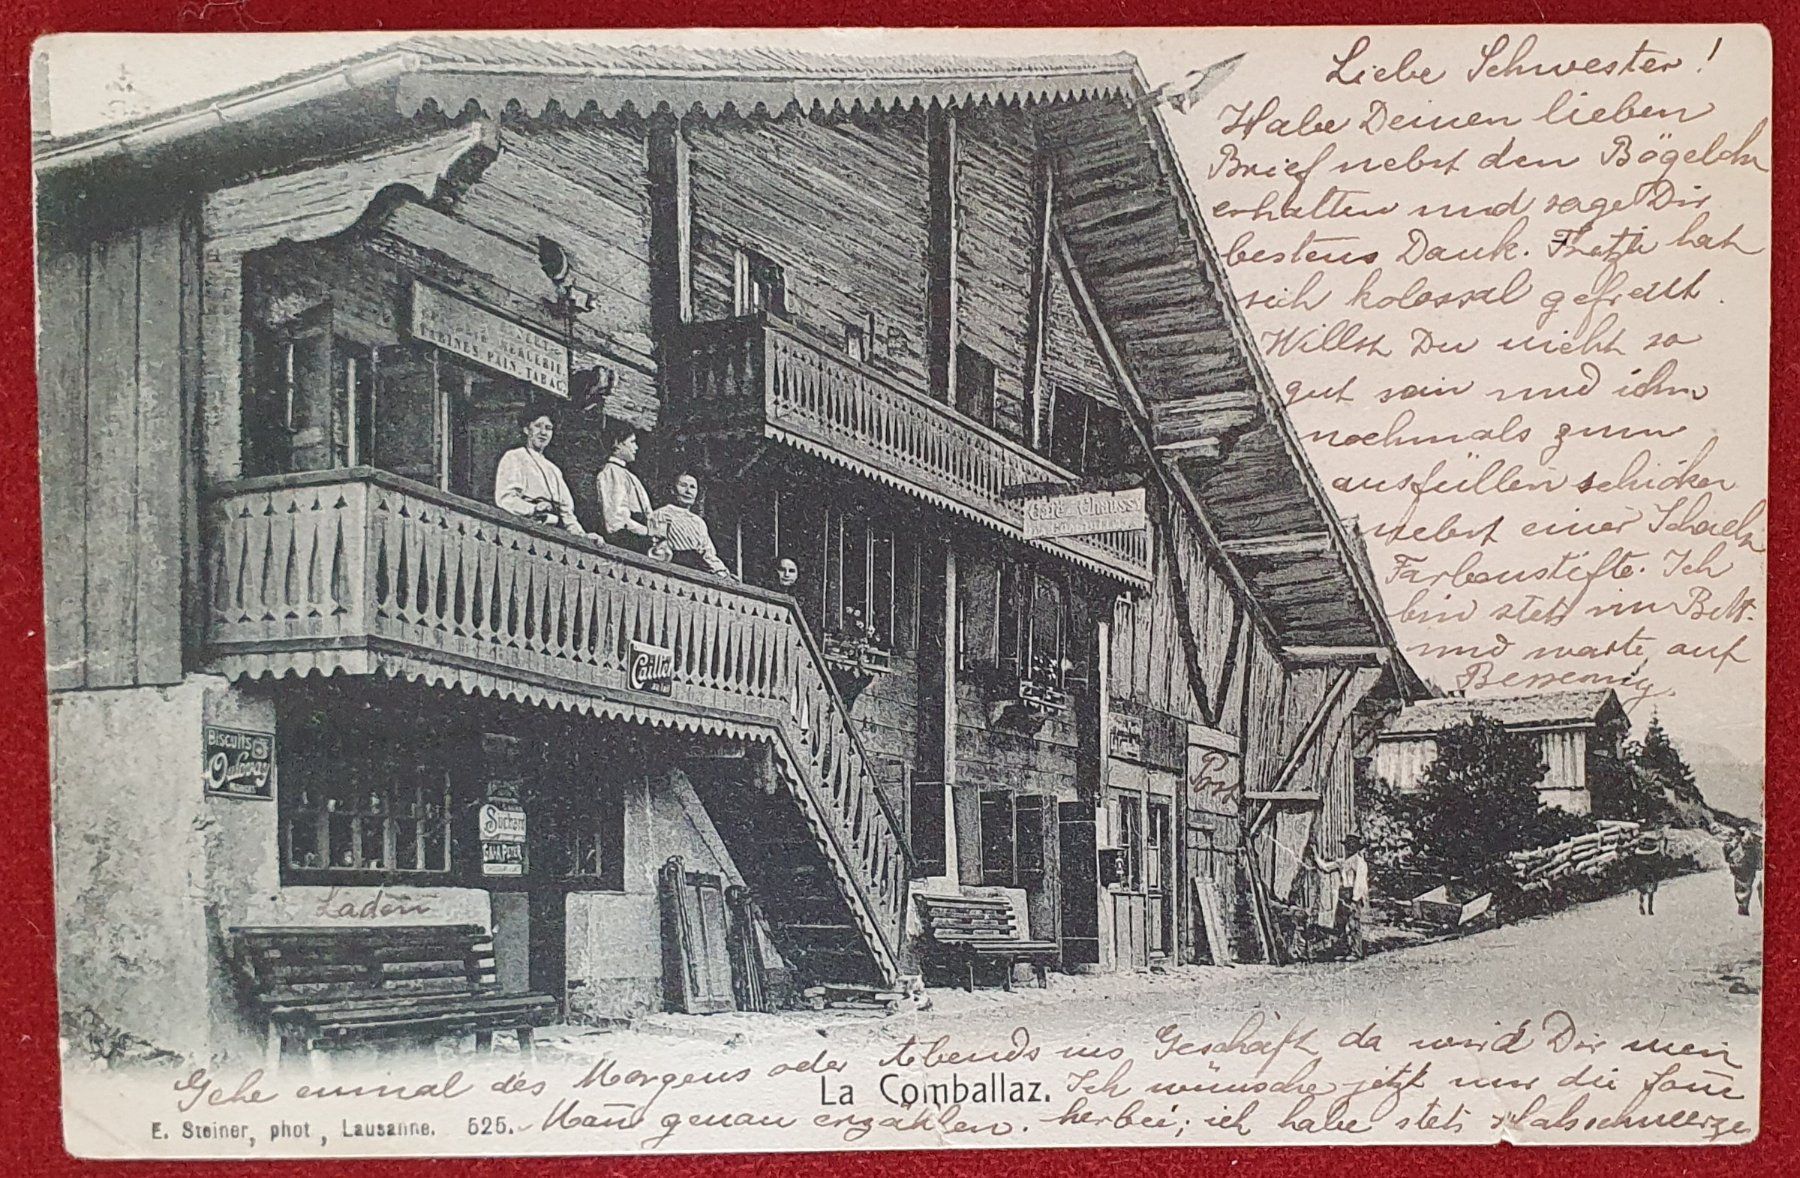 Liebe Schwester!
Habe Deinen lieben
Brief nebst den
erhalten und sage Dir
bestens Dank. hat
sich kolossal gefreut.
Willst Du nicht so
gut sein und ihm
nochmals zum
ausfüllen schicken
nebst einer Schach.
Farbenstifte. Ich
bin stets im Bett
und warte auf
Besserung.
ÉPICERIE
FOINES.PAIN.TABAC
Café Chauss
Cailler
Biscuits
Oulevay
Suchard
GALA PETER
Post
Laden
Gehe einmal des Morgens oder Abends ins Geschäft da wird Dir mein
La Comballaz.
Ich wünsche jetzt nur die
E. Steiner, phot, Lausanne. 525.
Mañ genau erzählen. herbei; ich habe stets Halsschmerze